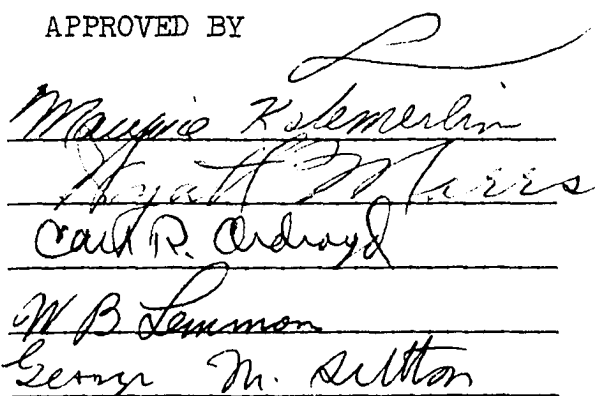 APPROVED BY
Maurice K. Temerlin
Wyatt Marrs
Carl R. Oldroyd
W B Lemmon
George M. Sutton